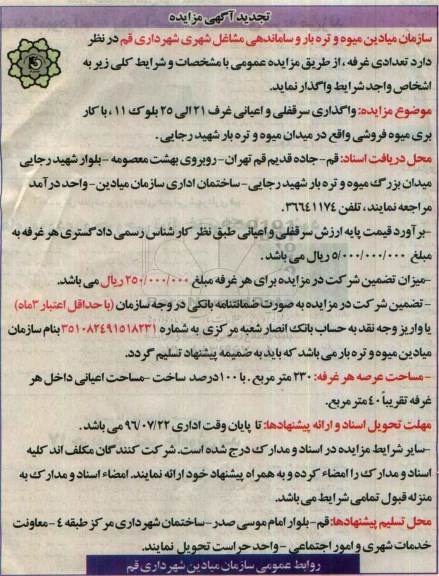 تجدید آگهی مزایده
سازمان میادین میوه و تره بار و ساماندهی مشاغل شهری شهرداری قم در نظر
دارد تعدادی غرفه ، از طریق مزایده عمومی با مشخصات و شرایط کلی زیر به
اشخاص واجد شرایط واگذار نماید.
موضوع مزایده: واگذاری سرقفلی و اعیانی غرف ۲۱ الی ۲۵ بلوک ۱۱ ، با کار
بری میوه فروشی واقع در میدان میوه و تره بار شهید رجایی .
محل دریافت اسناد: قم - جاده قدیم قم تهران - روبروی بهشت معصومه - بلوار شهید رجایی
میدان بزرگ میوه و تره بار شهید رجایی - ساختمان اداری سازمان میادین - واحد درآمد
مراجعه نمایند ، تلفن ۳۶۶۴۱۱۷۴.
-برآورد قیمت پایه ارزش سرقفلی و اعیانی طبق نظر کارشناس رسمی دادگستری هر غرفه به
مبلغ ۵/۰۰۰/۰۰۰/۰۰۰ ریال می باشد .
-میزان تضمین شرکت در مزایده برای هر غرفه مبلغ ۲۵۰/۰۰۰/۰۰۰ ریال می باشد.
- تضمین شرکت در مزایده به صورت ضمانتنامه بانکی در وجه سازمان (با حداقل اعتبار ۳ماه)
یا واریز وجه نقد به حساب بانک انصار شعبه مرکزی به شماره ۳۵۱۰۸۲۴۹۱۵۱۸۲۳۱ بنام سازمان
میادین میوه و تره بار می باشد که باید به ضمیمه پیشنهاد تسلیم گردد.
-مساحت عرصه هر غرفه: ۲۳۰ متر مربع . با ۱۰۰ درصد ساخت -مساحت اعیانی داخل هر
غرفه تقریباً ۴۰ متر مربع.
مهلت تحویل اسناد و ارائه پیشنهادها: تا پایان وقت اداری ۹۶/۰۷/۲۲ می باشد .
-سایر شرایط مزایده در اسناد و مدارک درج شده است. شرکت کنندگان مکلف اند کلیه
اسناد و مدارک را امضاء کرده و به همراه پیشنهاد خود ارائه نمایند. امضاء اسناد و مدارک به
منزله قبول تمامی شرایط می باشد.
محل تسلیم پیشنهادها: قم - بلوار امام موسی صدر - ساختمان شهرداری مرکز طبقه ٤ - معاونت
خدمات شهری و امور اجتماعی - واحد حراست تحویل نمایند.
روابط عمومی سازمان میادین شهرداری قم